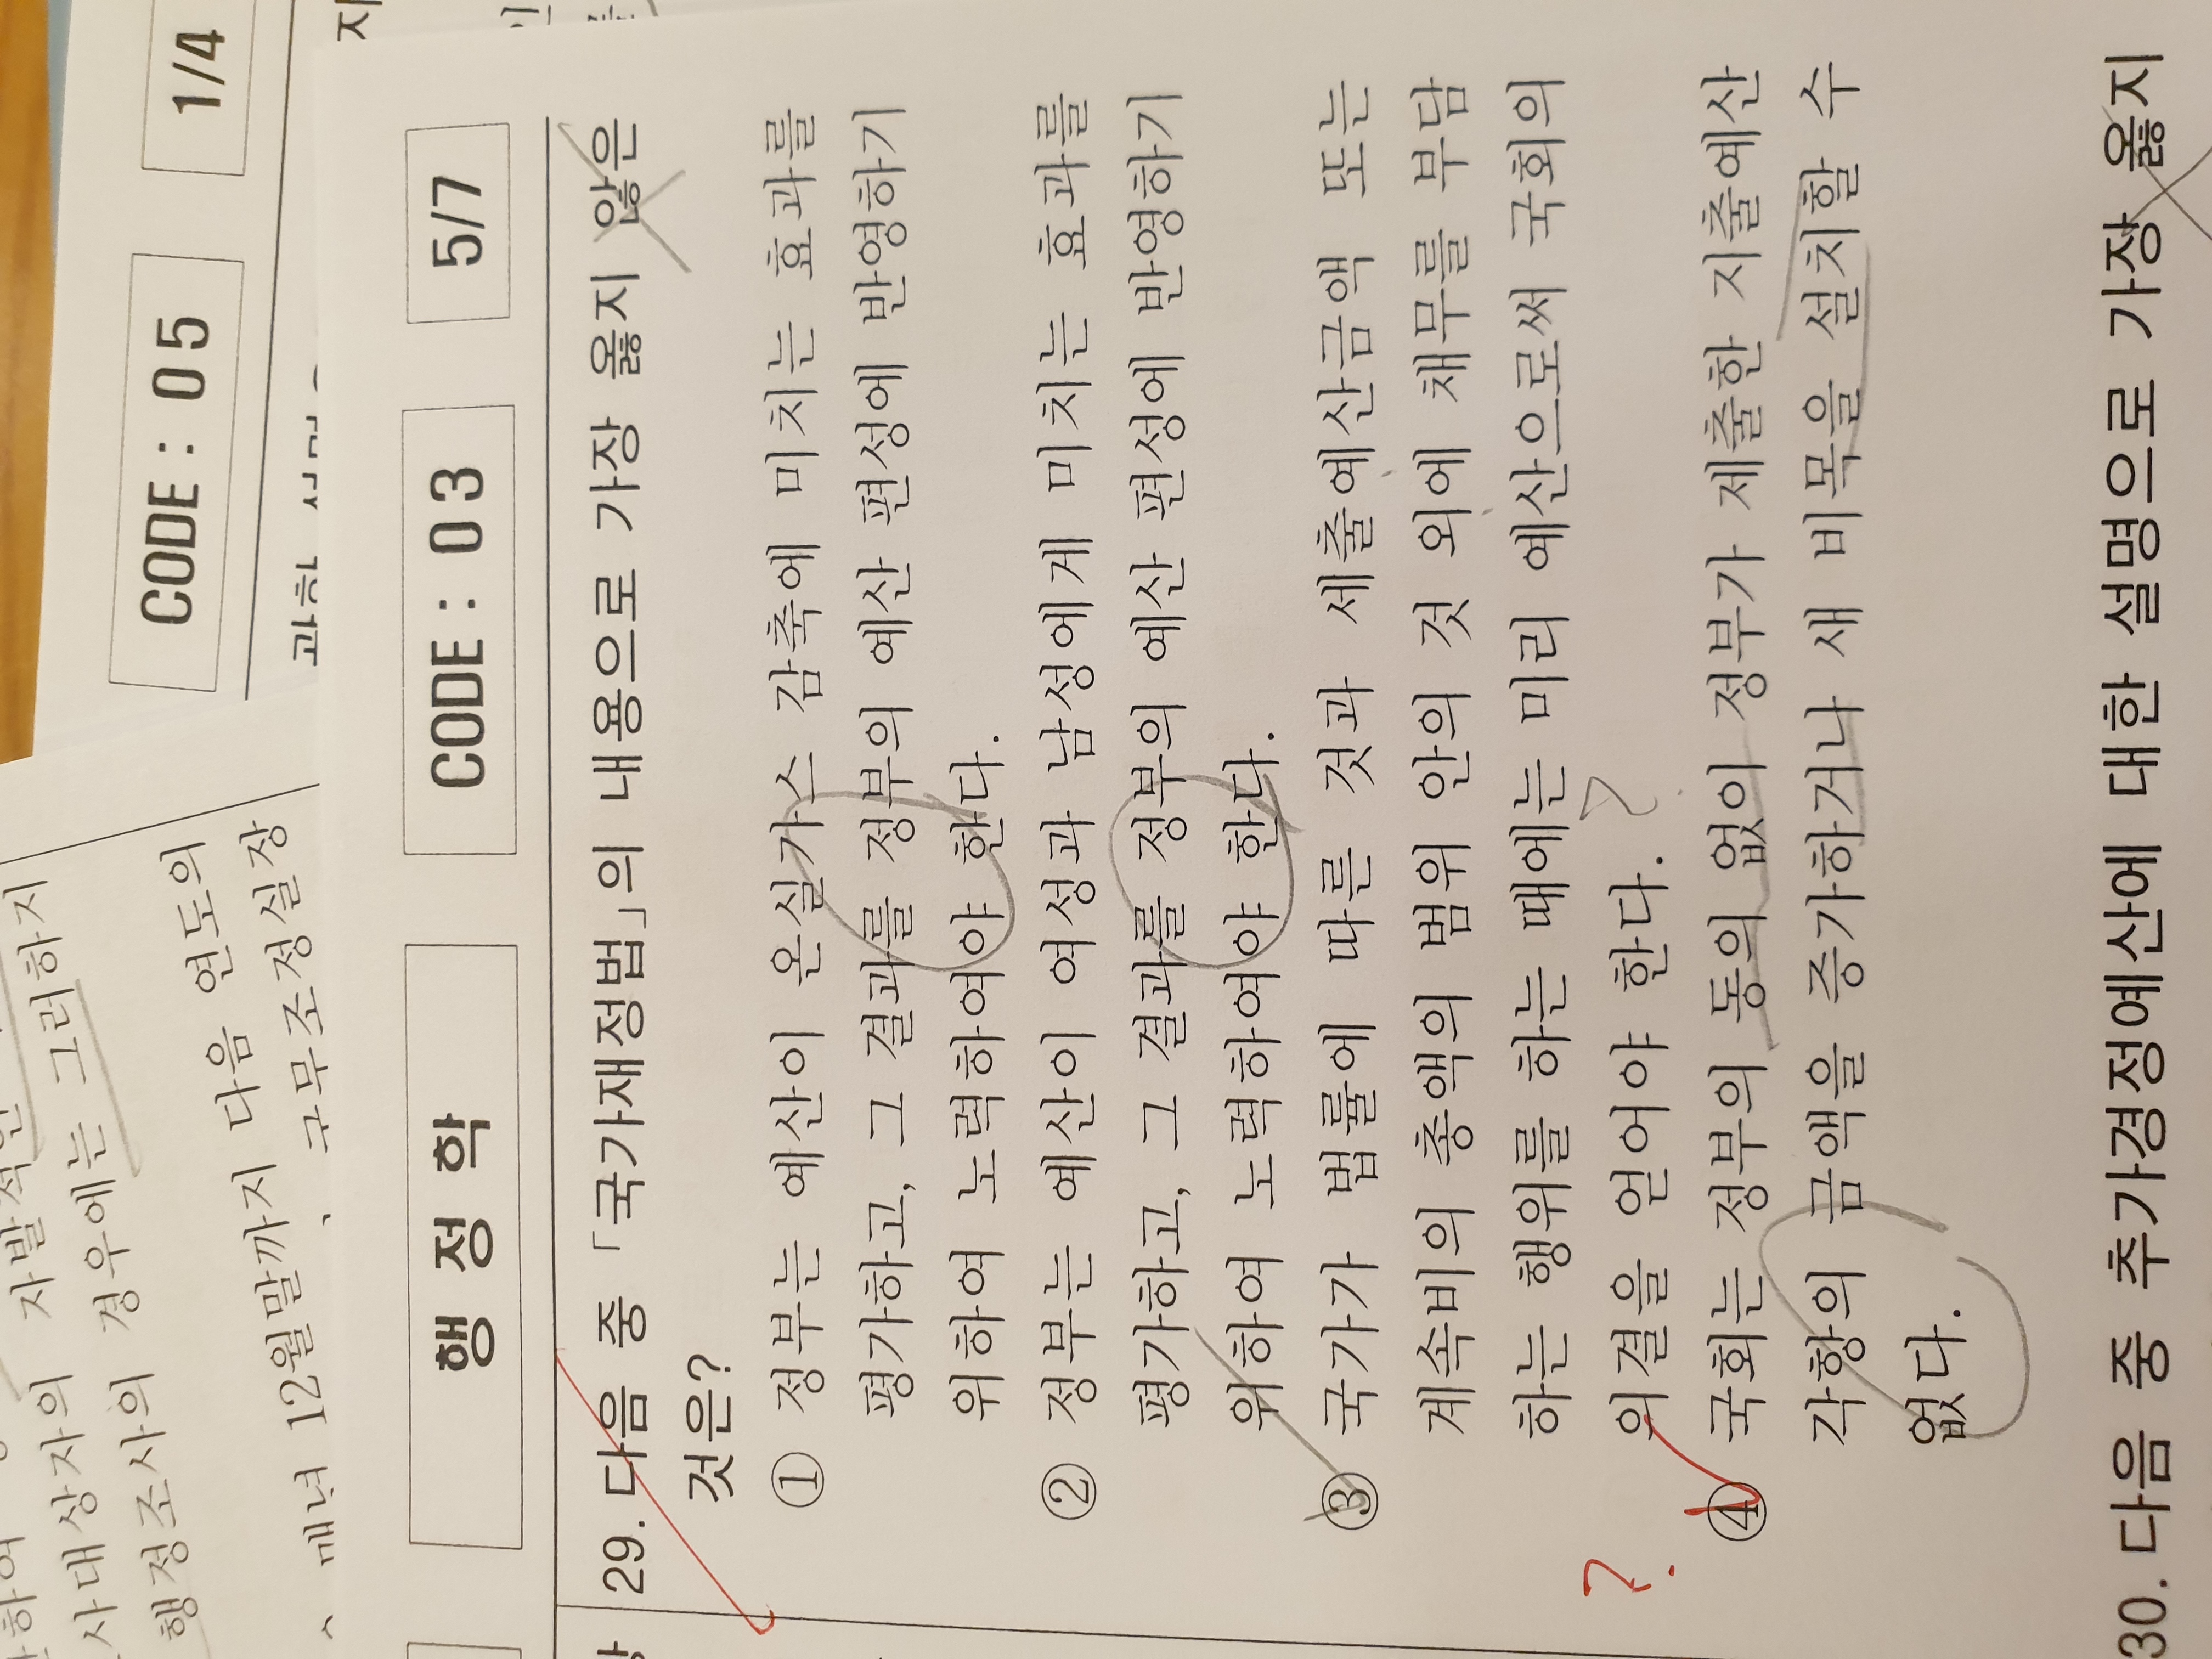 1/4
CODE : 05
행 정 학
CODE : 03
5/7
자발적인
사대상자의
행정조사의 경우에는 그러하지
다음 연도의
매년 12월말까지
국무조정실장
29. 다음 중 「국가재정법」의 내용으로 가장 옳지 않은
것은?
① 정부는 예산이 온실가스 감축에 미치는 효과를
평가하고, 그 결과를 정부의 예산 편성에 반영하기
위하여 노력하여야 한다.
② 정부는 예산이 여성과 남성에게 미치는 효과를
평가하고, 그 결과를 정부의 예산 편성에 반영하기
위하여 노력하여야 한다.
③ 국가가 법률에 따른 것과 세출예산금액 또는
계속비의 총액의 범위 안의 것 외에 채무를 부담
하는 행위를 하는 때에는 미리 예산으로써 국회의
의결을 얻어야 한다. ?
?
④ 국회는 정부의 동의 없이 정부가 제출한 지출예산
각항의 금액을 증가하거나 새 비목을 설치할 수
없다.
30. 다음 중 추가경정예산에 대한 설명으로 가장 옳지